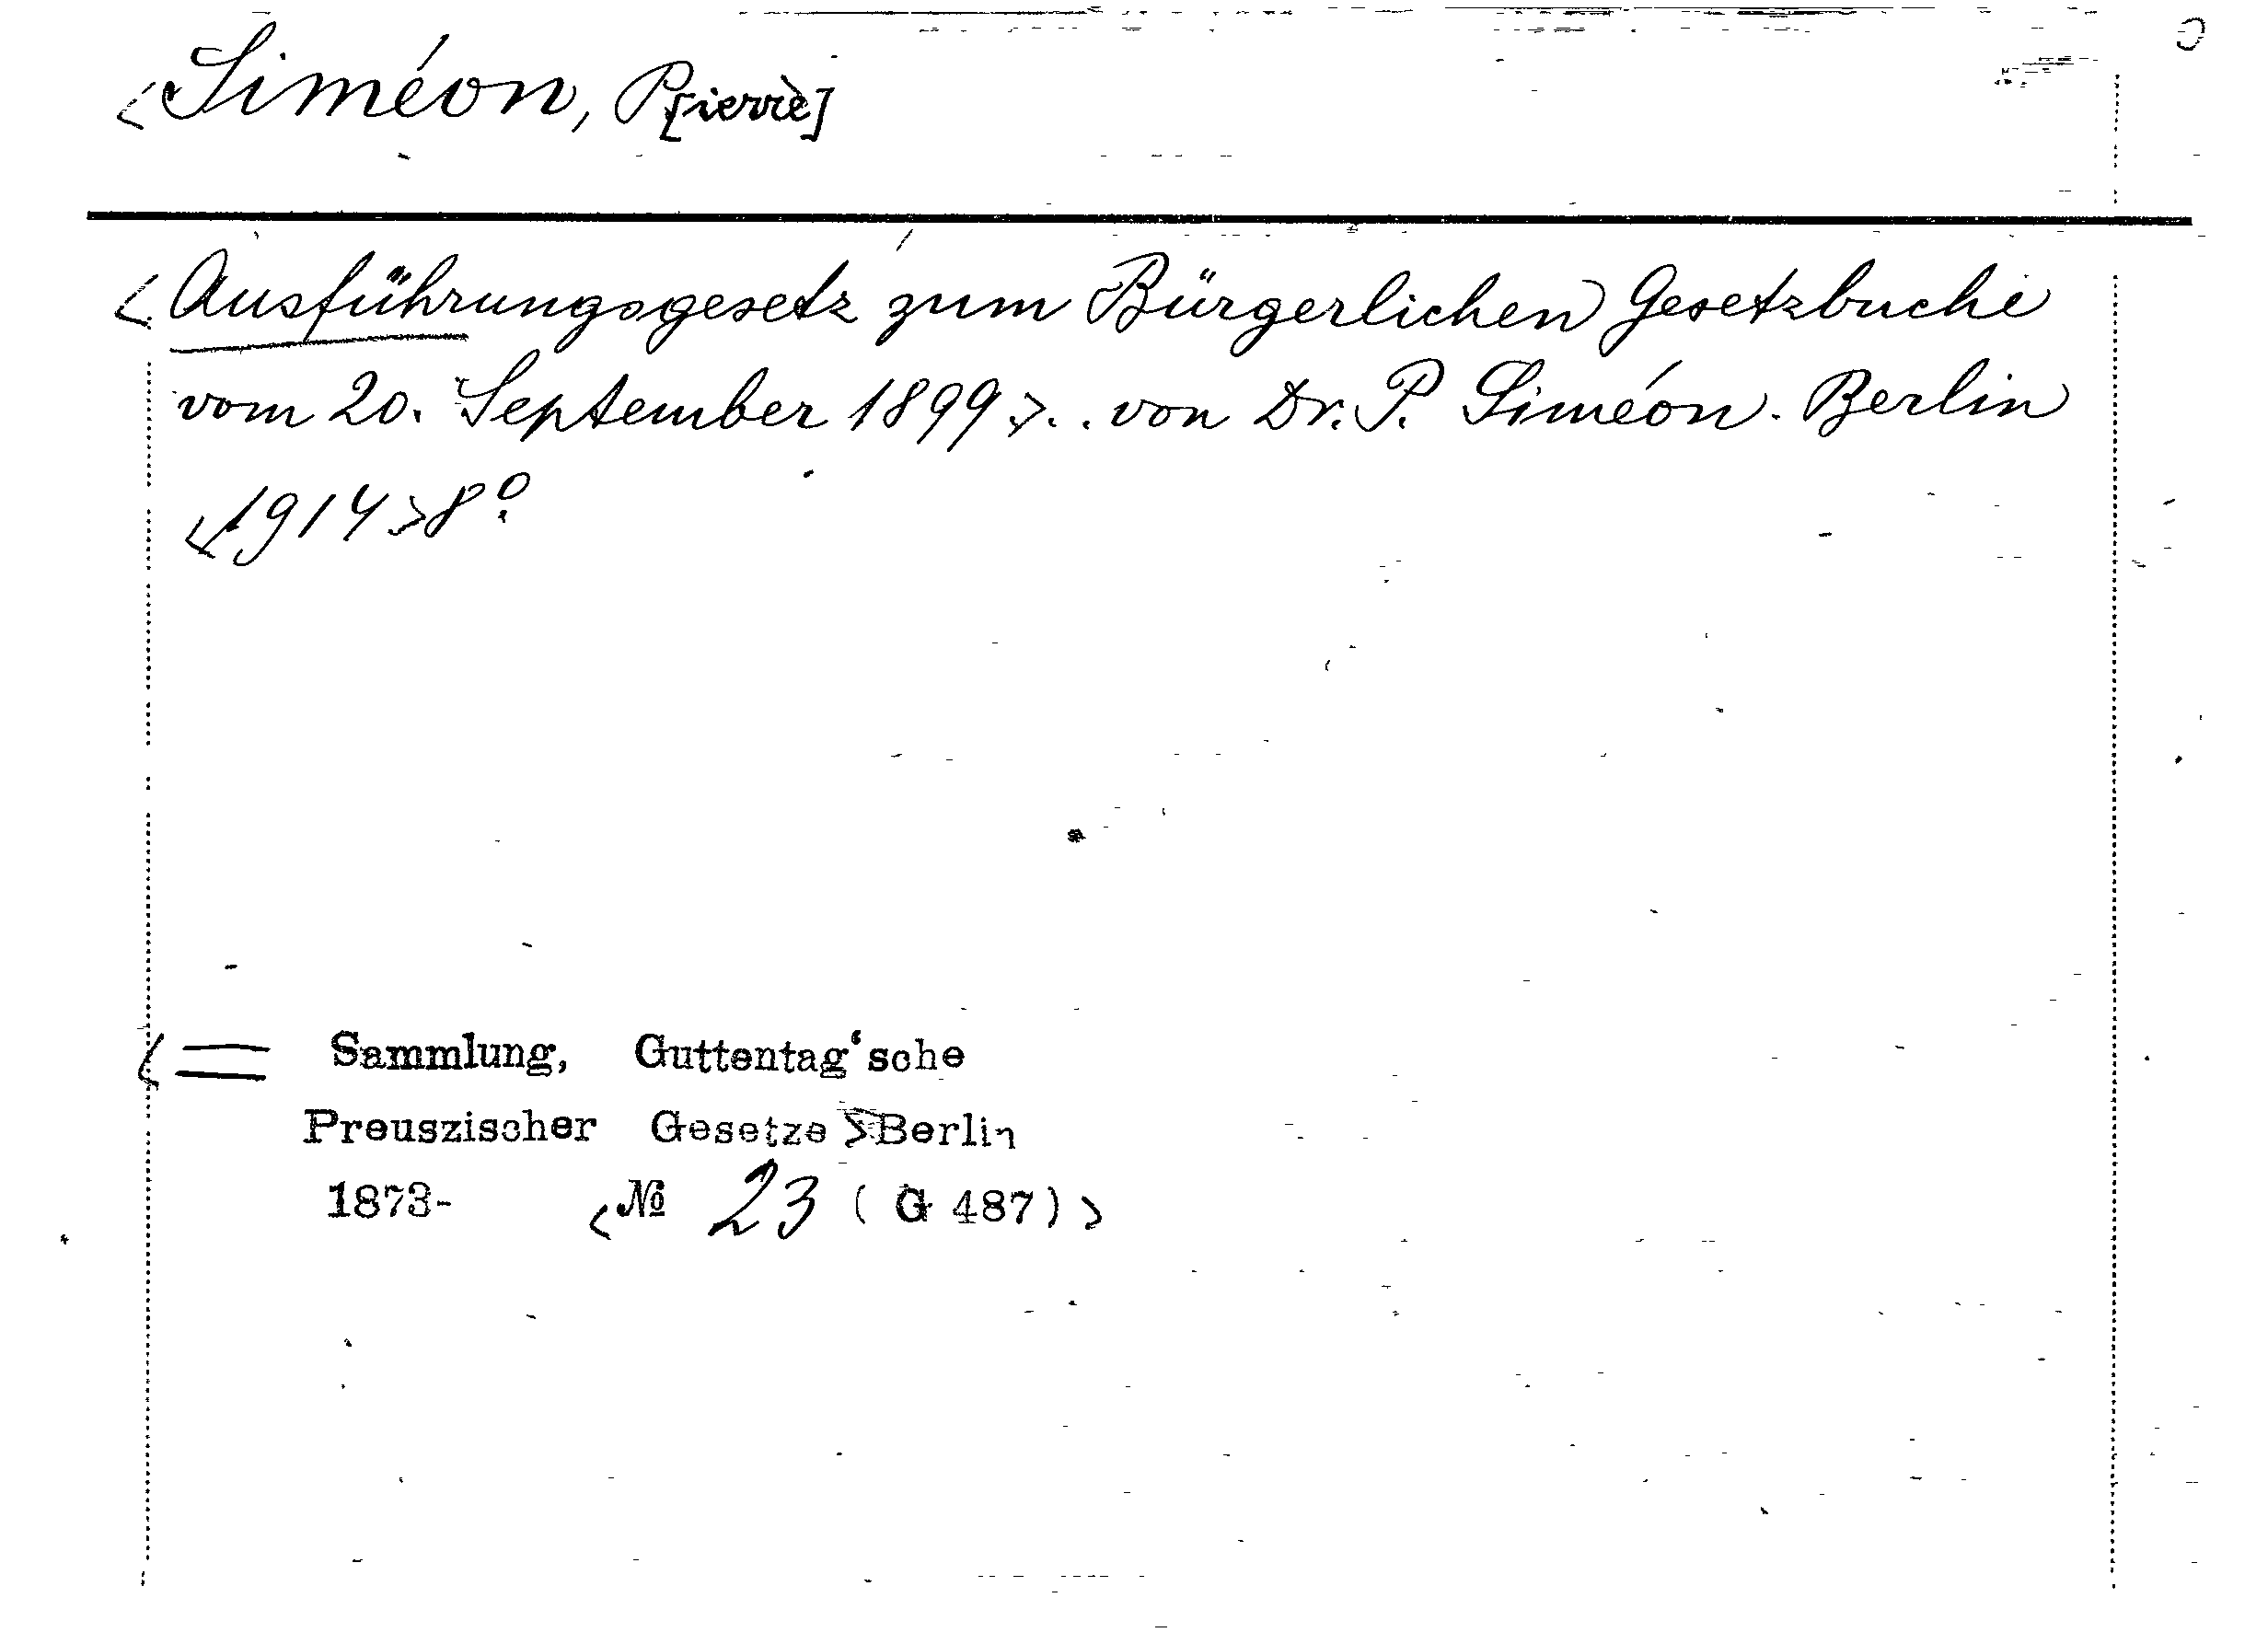 <Siméon, P[ierre]
<Ausführungsgesetz zum Bürgerlichen Gesetzbuche
vom 20. September 1899>... von Dr. P. Siméon. Berlin
<1914>8º
<= Sammlung, Guttentag'sche
Preuszischer Gesetze >Berlin
1873- <№ 23 (G 487)>